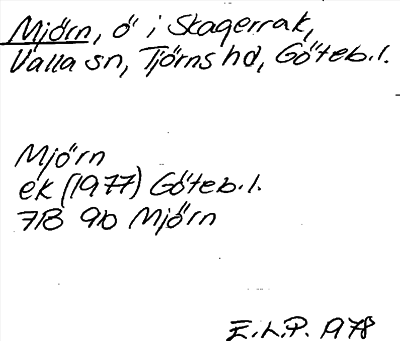 Mjörn, ö i Skagerrak,
Valla sn, Tjörns hd, Göteb.l.
Mjörn
ek (1977) Göteb.l.
7B 9b Mjörn
E.L.P. 1978